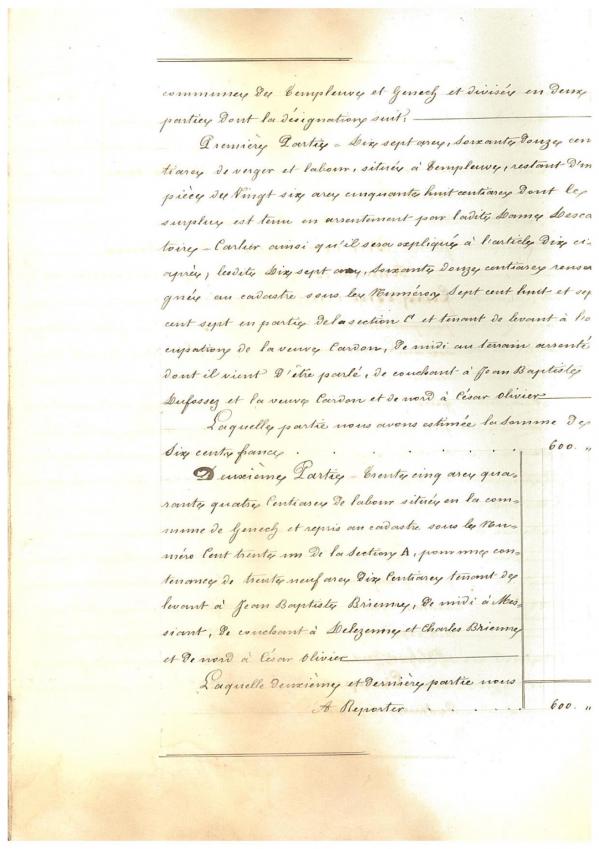 communes de Templeuve et Genech et divisée en deux
parties dont la désignation suit:
Première Partie - Dix sept ares, Soixante douze cen
tiares de verger et labour, situées à Templeuve, restant d'un
pièce de Vingt six ares cinquante huit centiares dont le
surplus est tenu en arrentement par ladite Dame Desca
toire - Cartier ainsi qu'il sera expliqué à l'article Dix ci-
après, lesdits Dix sept ares, Soixante douze centiares rensei
gnés au cadastre sous les Numéros Sept cent huit et sep
cent sept en partie de la section C et tenant de levant à l'oc
cupation de la veuve Cardon, de midi au terrain arrenté
dont il vient d'être parlé, de couchant à Jean Baptiste
Dufossez et la veuve Cardon et de nord à César Olivier
Laquelle partie nous avons estimée la Somme de
Six cents francs . . . . . . 600. "
Deuxième Partie - Trente cinq ares qua-
rante quatre Centiares de labour situées en la com-
mune de Genech et repris au cadastre sous le Nu-
méro Cent trente un de la Section A, pour une con-
tenance de trente neuf ares Dix Centiares tenant de
levant à Jean Baptiste Brienne, de midi à Mes-
siant, de couchant à Delezenne et Charles Brienne
et de nord à César Olivier
Laquelle deuxième et dernière partie nous
A Reporter . . . . . 600. "